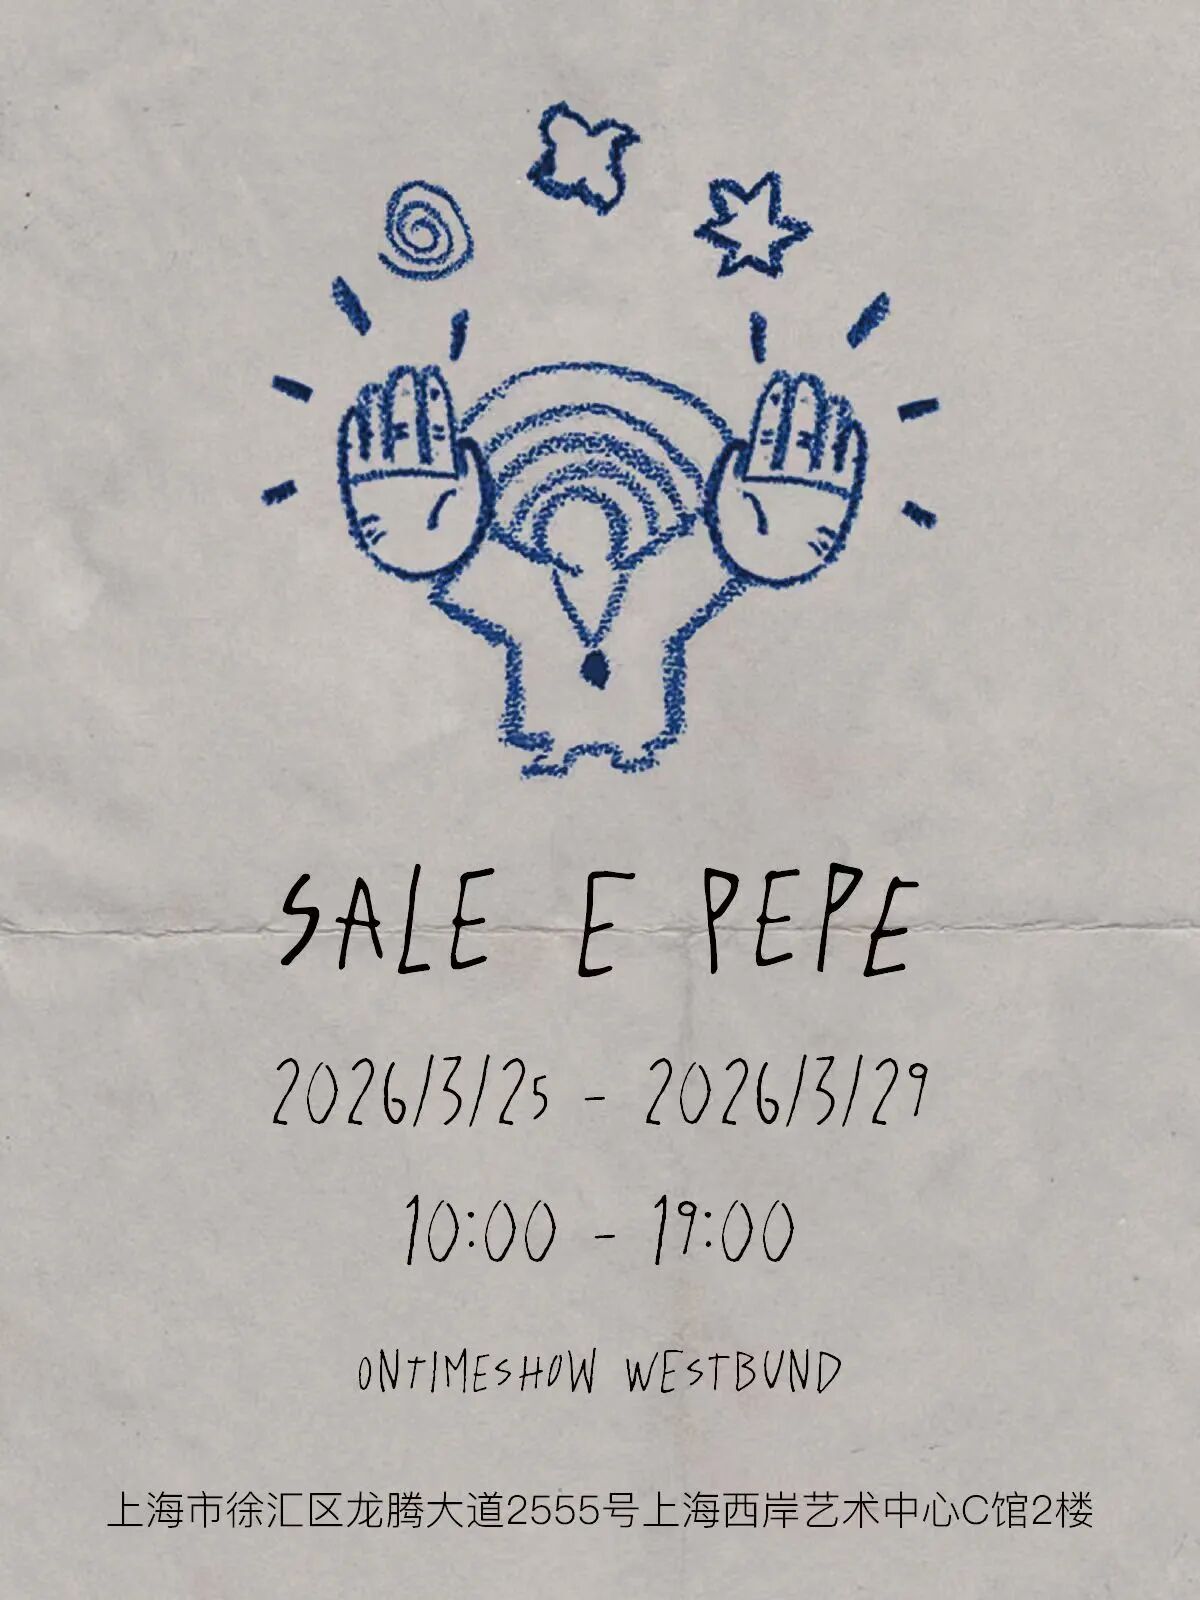 SALE E PEPE
2026/3/25 - 2026/3/29
10:00 - 19:00
ONTIMESHOW WESTBUND
上海市徐汇区龙腾大道2555号上海西岸艺术中心C馆2楼